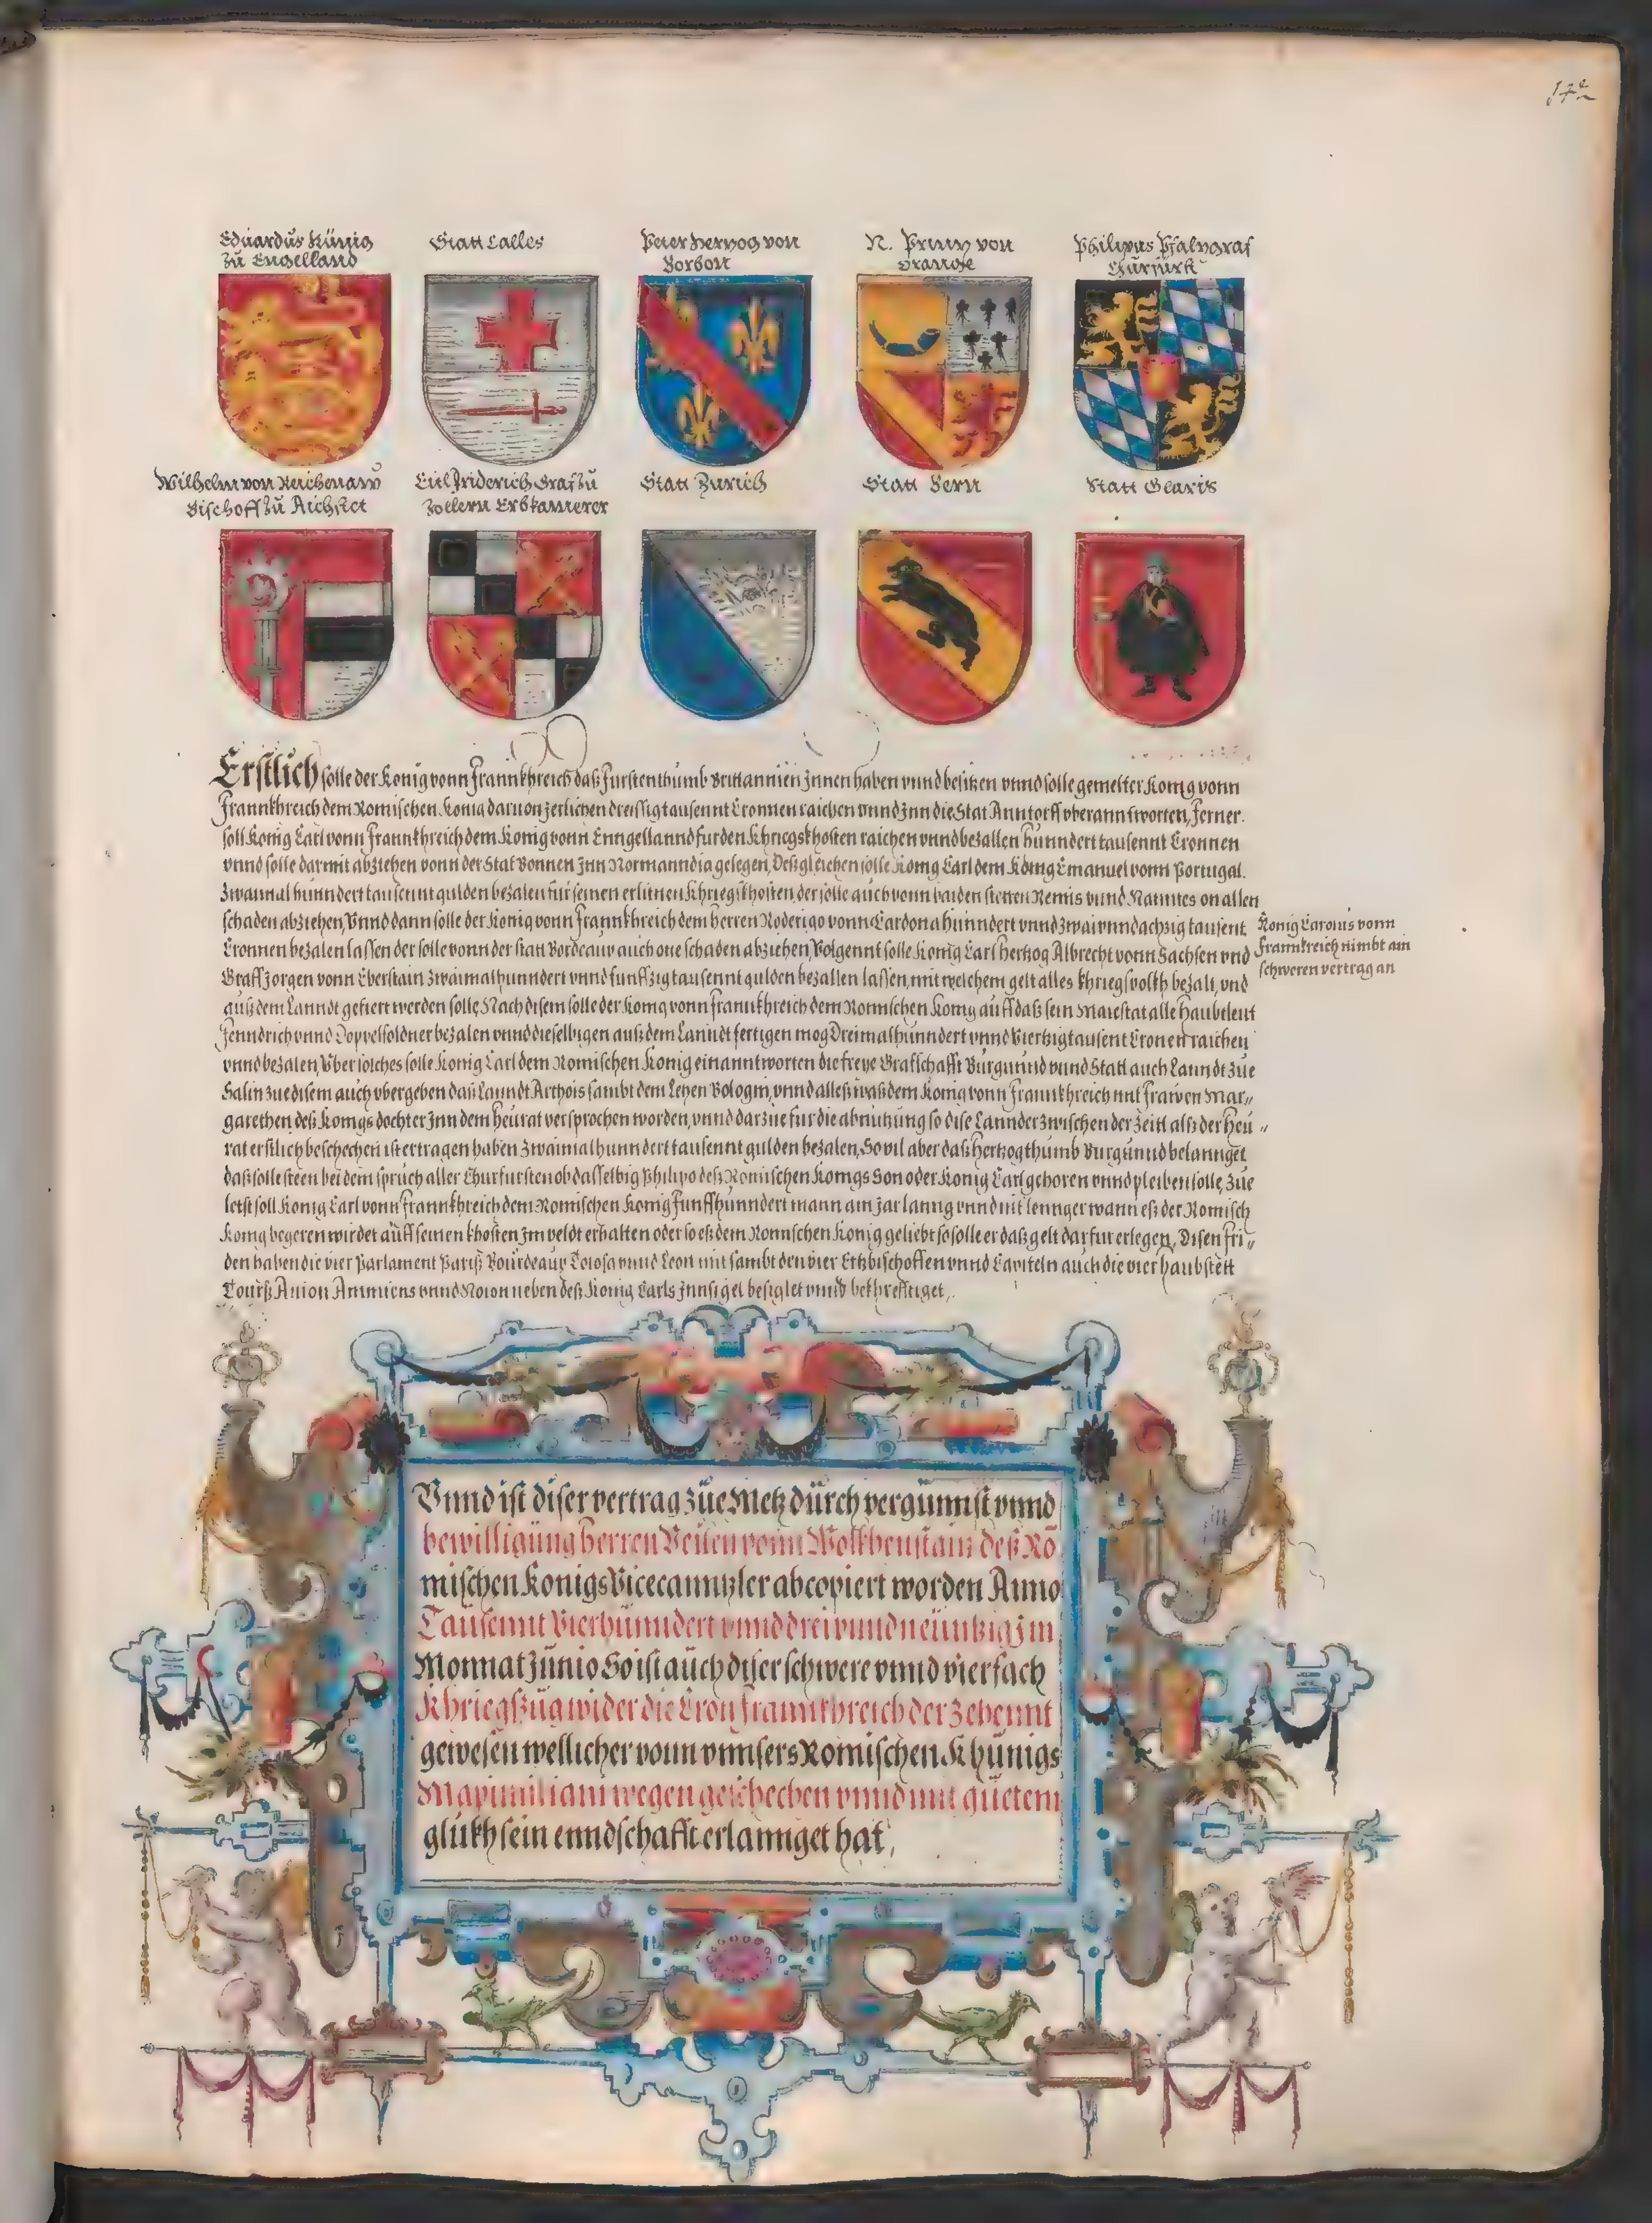 172
Eduardus Künig
zu Engelland
Statt Calles
Peter Hertzog von
Borbon
N. Printz von
Orange
Philipus Pfaltzgraf
Churfürst
Wilhelm von Reichenaw
Bischoff zu Aichstet
Eitl Friderich Graf zu
Zollern Erbkamerer
Statt Zürich
Statt Bern
Statt Glaris
Erstlich solle der Konig vonn Frannkhreich daß Furstenthumb Brittannien Jnnen haben vnnd besitzen vnnd solle gemelter Konig vonn
Frannkhreich dem Romischen Konig daruon Jerlichen dreissig tausennt Cronnen raichen vnnd Jnn die Stat Anntorff vberanntworten, Ferner
soll Konig Carl vonn Frannkhreich dem Konig vonn Enngellannd fur den Khriegskhosten raichen vnnd bezallen hunndert tausennt Cronnen
vnnd solle darmit abziehen vonn der Stat Bonnen Jnn Normanndia gelegen, Deßgleichen solle Konig Carl dem König Emanuel vonn Portugal
Zwaimal hunndert tausennt gulden bezalen für seinen erlitnen Khriegskhosten, der solle auch vonn baiden stetten Remis vnnd Nanntes on allen
schaden abziehen, Vnnd dann solle der Konig vonn Frannkhreich dem herren Roderigo vonn Cardona hunndert vnnd zwaivnndachzig tausent
Cronnen bezalen lassen der solle vonn der statt Bordeaux auch one schaden abziehen, Volgennt solle Konig Carl hertzog Albrecht vonn Sachsen vnd
Graff Jorgen vonn Eberstain zwaimalhunndert vnnd funffzig tausennt gulden bezallen lassen, mit welchem gelt alles khriegsvolkh bezalt, vnd
auß dem Lanndt gefiert werden solle, Nach disem solle der Konig vonn Frannkhreich dem Romischen Konig auff daß sein Maiestat alle haubtleut
Fenndrich vnnd Doppelsoldner bezalen vnnd dieselbigen auß dem Lanndt fertigen mog Dreimalhunndert vnnd Viertzig tausent Cronen raichen
vnnd bezalen, Vber solches solle Konig Carl dem Romischen Konig einanntworten die freye Grafschafft Burgunnd vnnd Statt auch Lanndt zue
Salin zue disem auch vbergeben daß Lanndt Arthois sambt dem Lehen Bologni, vnnd alleß waß dem Konig vonn Frannkhreich mit Frawen Mar-
garethen deß Konigs dochter Jnn dem heurat versprochen worden, vnnd darzue fur die abnutzung so dise Lannder zwischen der Zeitt alß der Heu-
rat erstlich beschechen ist ertragen haben zwaimalhunndert tausennt gulden bezalen, Sovil aber daß hertzogthumb Burgunnd belannget
daß solle steen bei dem spruch aller Churfursten ob dasselbig Philipo deß Romischen Konigs Son oder Konig Carl gehoren vnnd pleiben solle, Zue
letst soll Konig Carl vonn Frannkhreich dem Romischen Konig Funffhunndert mann ain Jar lanng vnnd nit lennger wann eß der Romisch
Konig begeren wirdet auff seinen khosten Jm veldt erhalten oder so eß dem Romischen Konig geliebt so solle er daß gelt darfur erlegen, Disen fri-
den haben die vier Parlament Pariß Bourdeaux Tolosa vnnd Leon mit sambt den vier Ertzbischoffen vnnd Capiteln auch die vier haubstett
Tourß Anion Ammiens vnnd Noion neben deß Konig Carls Jnnsigel besiglet vnnd bekhrefftiget,
Konig Carolus vonn
Frannkreich nimbt ain
schweren vertrag an
Vnnd ist diser vertrag zue Metz durch vergunnst vnnd
bewilligung herren Veiten vonn Wolkhenstain deß Ro
mischen Konigs Vicecanntzler abcopiert worden Anno
Tausennt Vierhunndert vnnd drei vnnd neüntzig Jm
Monnat Junio So ist auch diser schwere vnnd vierfach
Khriegßzug wider die Cron Frannkhreich der Zehennt
gewesen wellicher vonn vnnsers Romischen Khunigs
Maximiliani wegen geschechen vnnd mit guetem
glükh sein enndschafft erlannget hat,